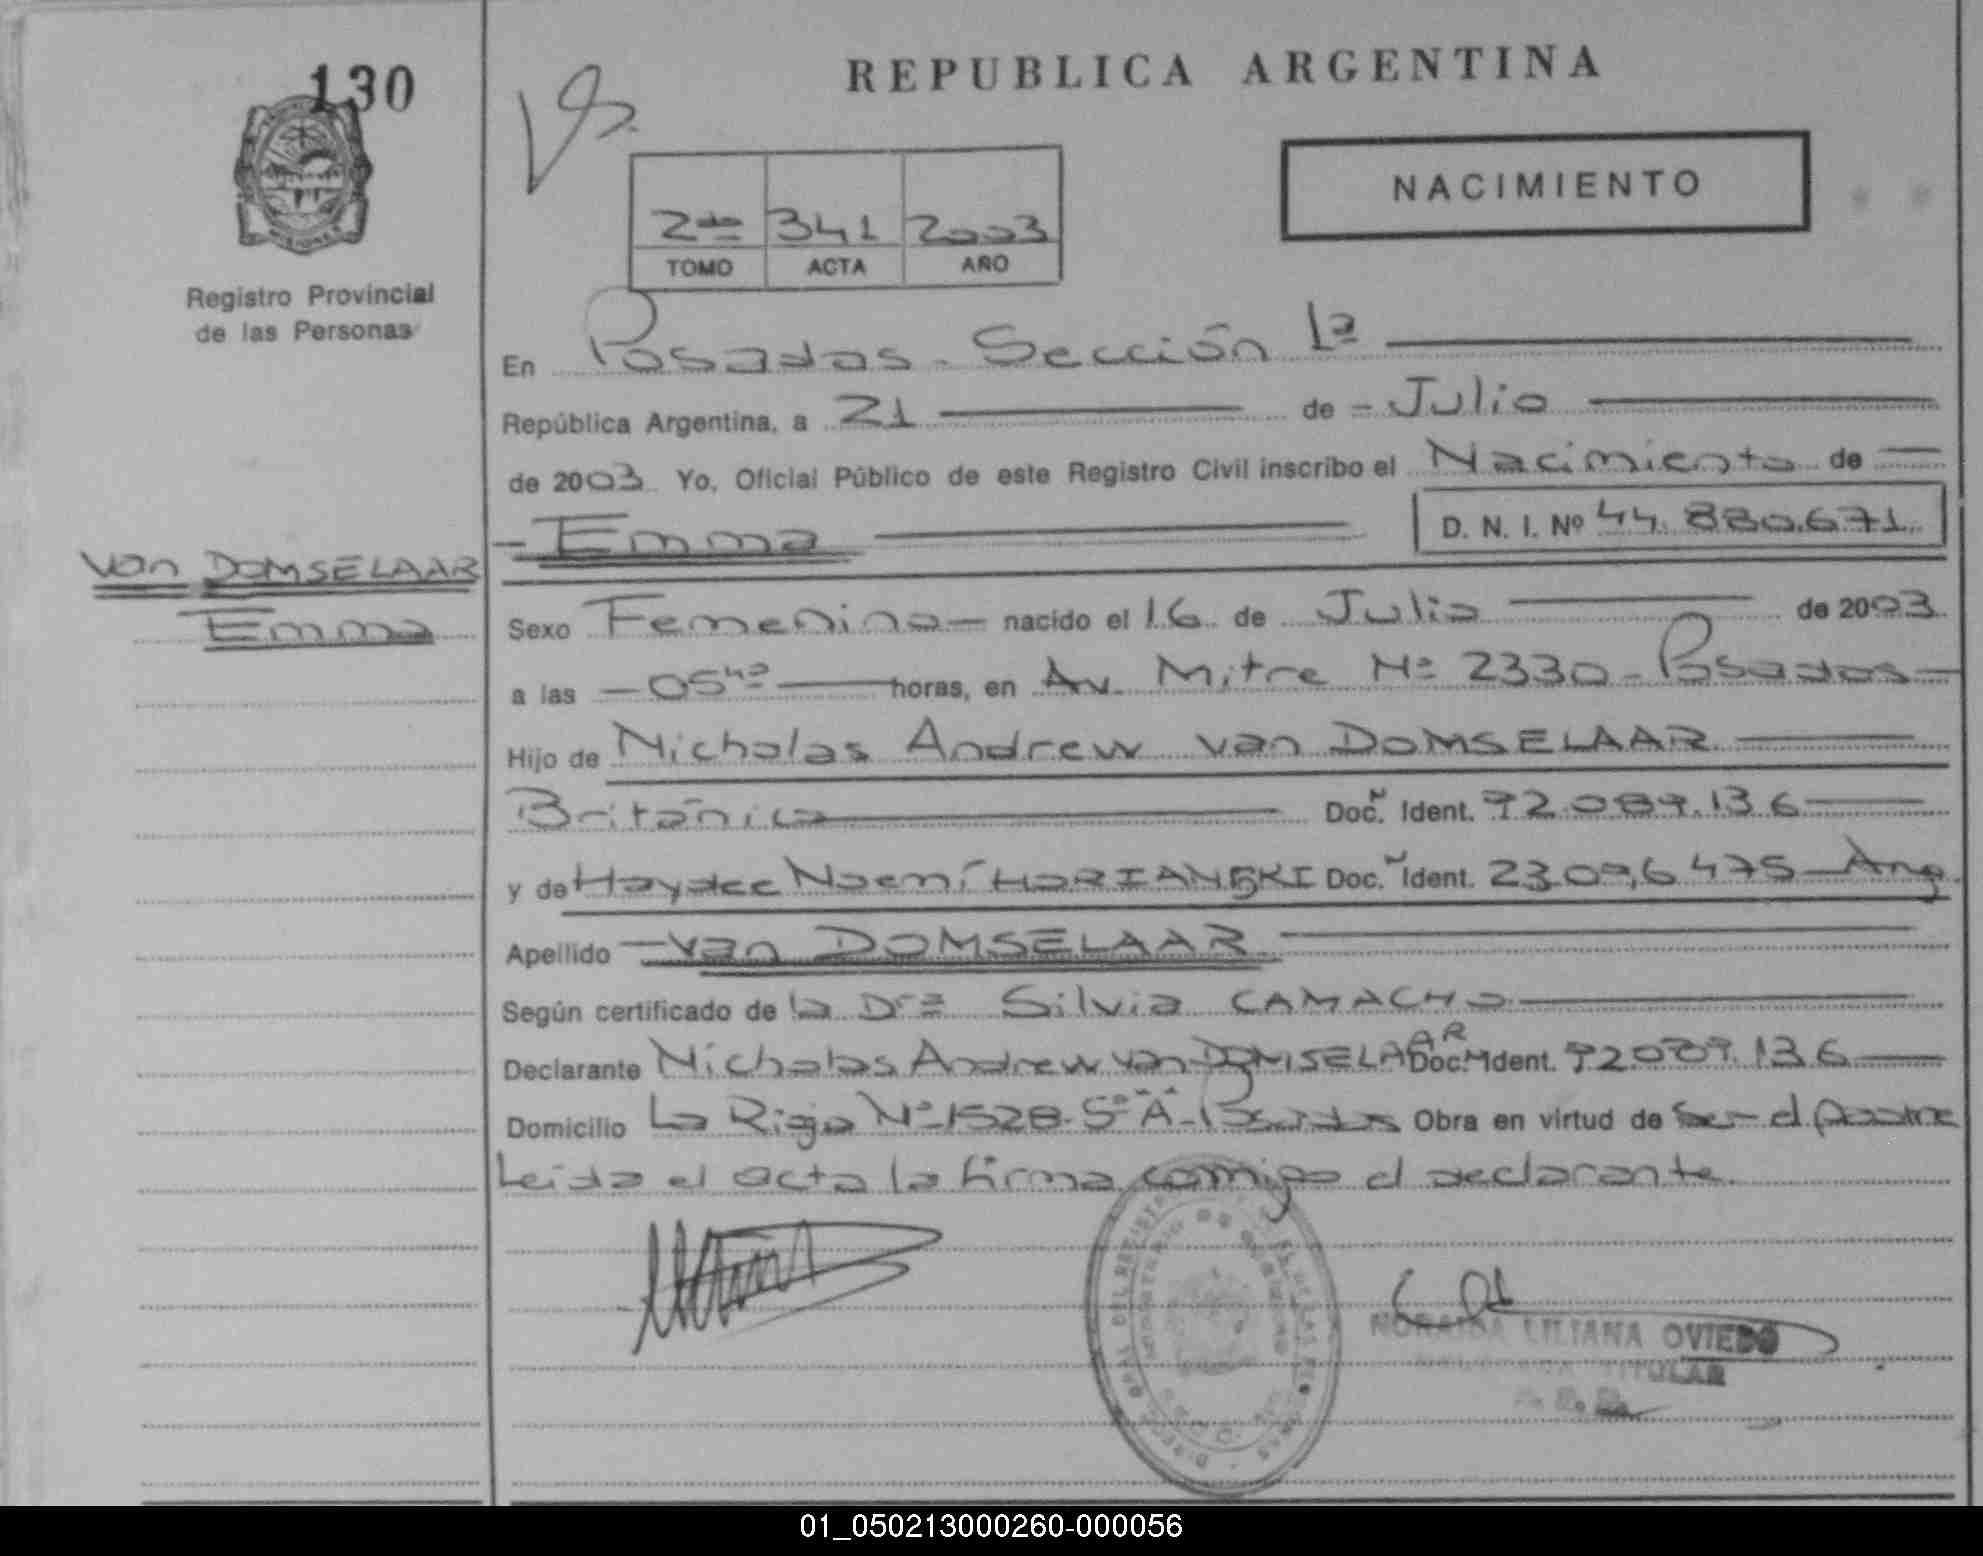 130
REPUBLICA ARGENTINA
NACIMIENTO
2do 341 2003
TOMO ACTA AÑO
Registro Provincial
de las Personas
En Posadas - Sección 1ª
República Argentina, a 21 de Julio
de 2003 Yo, Oficial Público de este Registro Civil inscribo el Nacimiento de
Emma D. N. I. Nº 44.880.671
van DOMSELAAR
Emma
Sexo Femenino nacido el 16 de Julio de 2003
a las 05 40 horas, en Av. Mitre Nº 2330 - Posadas
Hijo de Nicholas Andrew van DOMSELAAR
Británica Doc. Ident. 92.089.136
y de Haydee Noemí HORIANSKI Doc. Ident. 23.096.475 Arg.
Apellido van DOMSELAAR
Según certificado de la Dra Silvia CAMACHO
Declarante Nicholas Andrew van DOMSELAAR Doc. Ident. 92.089.136
Domicilio La Rioja Nº 1528 - 5º "A" - Posadas Obra en virtud de ser el padre
Leida el acta la firma comigo el declarante.
NORAIDA LILIANA OVIEDO
TITULAR
01_050213000260-000056